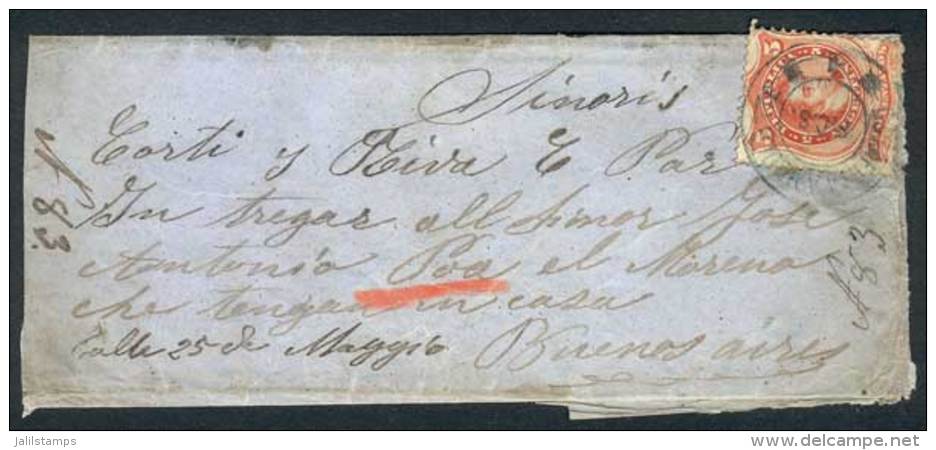 Sinoris
Corti y Riva E Par
In tregar all Sinor Jose
Antonio Poa el Moreno
che tengan in casa
Calle 25 de Maggio Buenos aires
N 83
N 853
REPUBLICA ARGENTINA
5
jalilstamps
www.delcampe.net